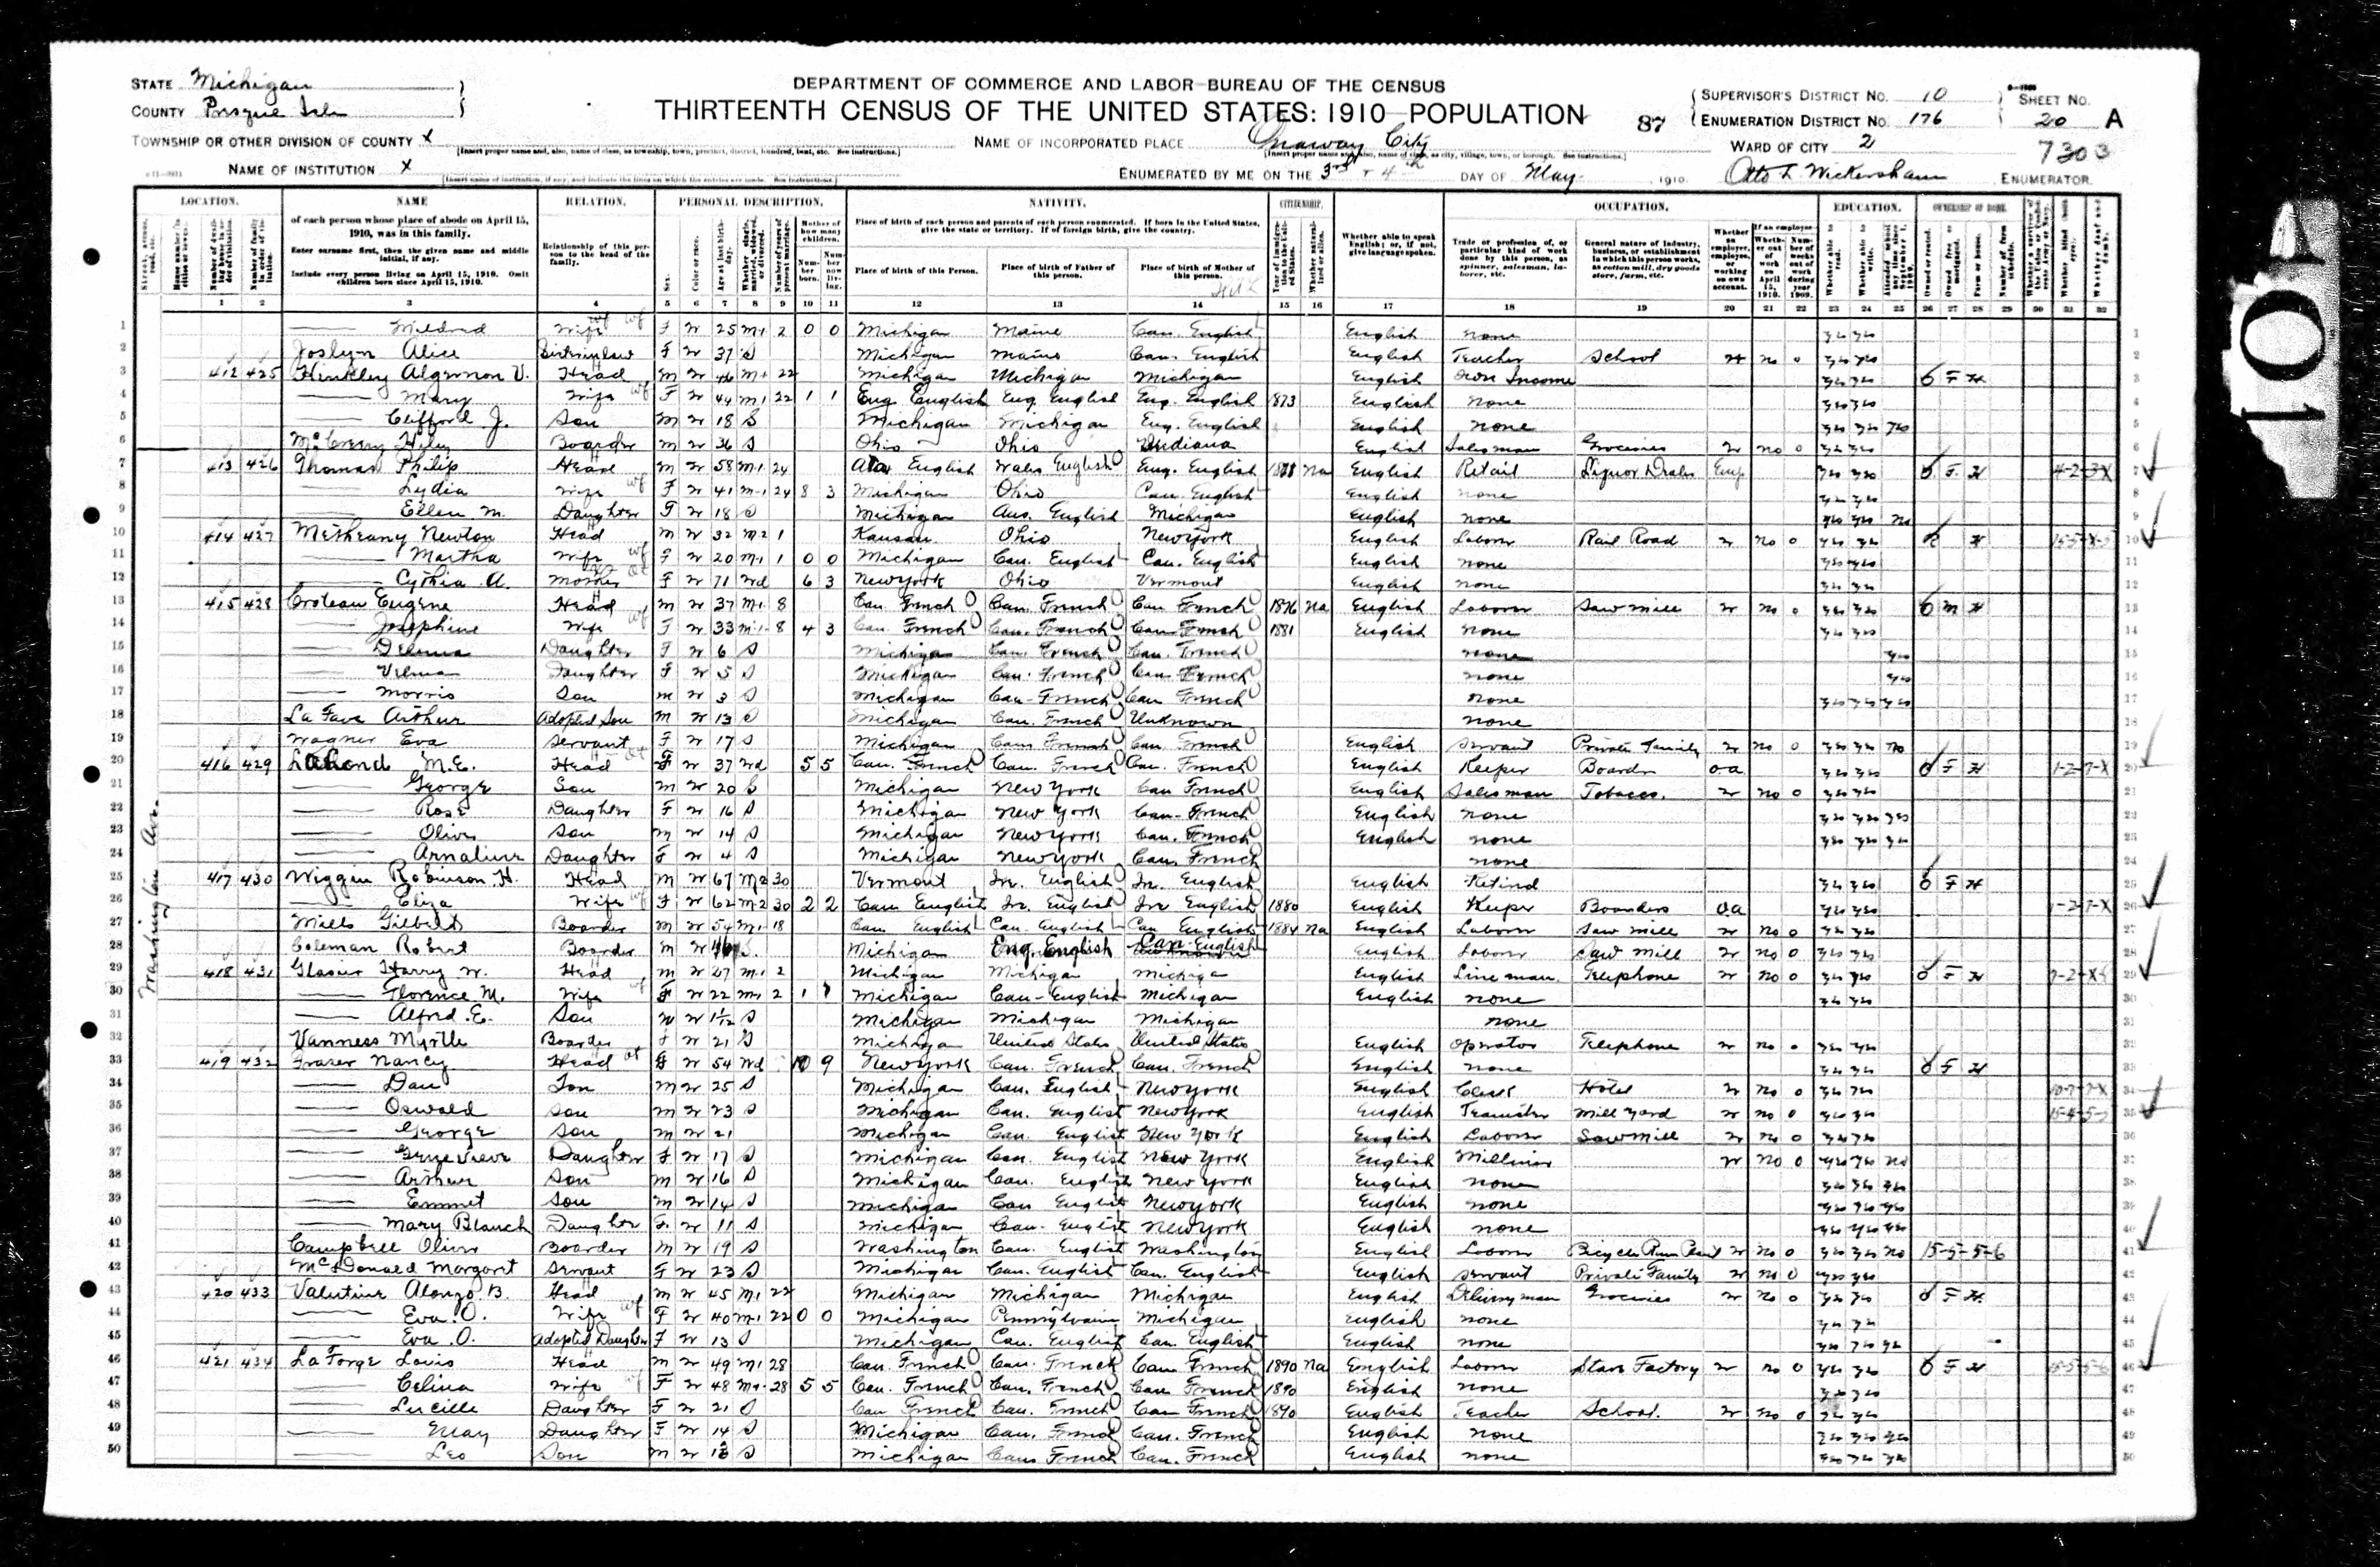 STATE Michigan
COUNTY Presque Isle
TOWNSHIP OR OTHER DIVISION OF COUNTY X
NAME OF INSTITUTION X
DEPARTMENT OF COMMERCE AND LABOR-BUREAU OF THE CENSUS
THIRTEENTH CENSUS OF THE UNITED STATES: 1910-POPULATION
NAME OF INCORPORATED PLACE Onaway City
ENUMERATED BY ME ON THE 3rd + 4th DAY OF May, 1910. Otto L Wickersham ENUMERATOR.
87
SUPERVISOR'S DISTRICT NO. 10
ENUMERATION DISTRICT NO. 176
WARD OF CITY 2
SHEET NO. 20 A
7303
LOCATION. NAME RELATION. PERSONAL DESCRIPTION. NATIVITY. CITIZENSHIP. OCCUPATION. EDUCATION. OWNERSHIP OF HOME.
of each person whose place of abode on April 15, 1910, was in this family.
Enter surname first, then the given name and middle initial, if any.
Include every person living on April 15, 1910. Omit children born since April 15, 1910.
Relationship of this person to the head of the family.
Place of birth of each person and parents of each person enumerated. If born in the United States, give the state or territory. If of foreign birth, give the country.
Place of birth of this Person. Place of birth of Father of this person. Place of birth of Mother of this person.
Whether able to speak English; or, if not, give language spoken.
Trade or profession of, or particular kind of work done by this person, as spinner, salesman, laborer, etc.
General nature of industry, business, or establishment in which this person works, as cotton mill, dry goods store, farm, etc.
1 2 3 4 5 6 7 8 9 10 11 12 13 14 15 16 17 18 19 20 21 22 23 24 25 26 27 28 29 30 31 32
Washington Ave.
1 Mildred Wife F W 25 M1 2 0 0 Michigan Maine Can. English English none
2 Joslyn Alice Sisterinlaw F W 37 S Michigan Maine Can. English English Teacher School W no 0
3 412 425 Hinkley Algernon V. Head M W 46 M1 22 Michigan Michigan Michigan English Own Income O F H
4 Mary Wife F W 44 M1 22 1 1 Eng. English Eng. English Eng. English 1873 English none
5 Clifford J. Son M W 18 S Michigan Michigan Eng. English English none
6 Boarder M W 36 S Ohio Ohio Indiana English Salesman Groceries W no 0
7 413 426 Thomas Philip Head M W 58 M1 24 English Wales English Eng. English Na English Retail Liquor Dealer Emp O F H
8 Lydia Wife F W 41 M1 24 8 3 Michigan Ohio Can. English English none
9 Ellen M. Daughter F W 18 S Michigan Aus. English Michigan English none no
10 414 427 Metheany Newton Head M W 32 M2 1 Kansas Ohio New York English Laborer Rail Road W no 0 R H
11 Martha Wife F W 20 M1 1 0 0 Michigan Can. English Can. English English none
12 Cythia A. Mother F W 71 Wd 6 3 New York Ohio Vermont English none
13 415 428 Croteau Eugene Head M W 37 M1 8 Can. French Can. French Can French 1876 Na English Laborer Saw mill W no 0 O M H
14 Josephine Wife F W 33 M1 8 4 3 Can. French Can. French Can French 1881 English none
15 Delema Daughter F W 6 S Michigan Can. French Can. French none
16 Velma Daughter F W 5 S Michigan Can. French Can French none yes
17 Morris Son M W 3 S Michigan Can-French Can French none
18 La Fave Arthur Adopted Son M W 13 S Michigan Can. French Unknown none
19 Wagner Eva Servant F W 17 S Michigan Can. French Can. French English Servant Private Family W no 0 no
20 416 429 LaLond M.E. Head F W 37 Wd 5 5 Can. French Can. French Can. French English Keeper Boarder oa O F H
21 George Son M W 20 S Michigan New York Can French English Salesman Tobacco. W no 0
22 Rose Daughter F W 16 S Michigan New York Can-French English none
23 Oliver Son M W 14 S Michigan New York Can. French English none
24 Daughter F W 4 S Michigan New York Can. French none
25 417 430 Wiggin Robinson H. Head M W 67 M2 30 Vermont Ire. English Ire. English English Retired O F H
26 Eliza Wife F W 62 M2 30 2 2 Can English Ire. English Ire English 1880 English Keeper Boarders oa
27 Mills Gilbert Boarder M W 54 M1 18 Can English Can. English Can English 1884 Na English Laborer Saw mill W no 0
28 Coleman Robert Boarder M W S Michigan Eng. English Can. English English Laborer Saw Mill W no 0
29 418 431 Glasier Harry W. Head M W 27 M1 2 Michigan Michigan Michigan English Line man Telephone W no 0 O F H
30 Florence M. Wife F W 22 M1 2 1 1 Michigan Can-English Michigan English none
31 Alfred E. Son M W 1/12 S Michigan Michigan Michigan none
32 Vanness Myrtle Boarder F W 21 S Michigan United States United States English Operator Telephone W no 0
33 419 432 Fraser Nancy Head F W 54 Wd 10 9 New York Can. French Can. French English none O F H
34 Dan Son M W 25 S Michigan Can. English New York English Clerk Hotel W no 0
35 Oswald Son M W 23 S Michigan Can. English New York English Teamster Mill yard W no 0
36 George Son M W 21 Michigan Can. English New York English Laborer Sawmill W no 0
37 Genevieve Daughter F W 17 S Michigan Can. English New York English Milliner W no 0 no
38 Arthur Son M W 16 S Michigan Can. English New York English none
39 Emmet Son M W 14 S Michigan Can English New York English none
40 Mary Blanch Daughter F W 11 S Michigan Can. English New York English none
41 Campbell Oliver Boarder M W 19 S Washington Can. English Washington English Laborer Bicycle Rim Plant W no 0 no 15-5-5-6
42 McDonald Margaret Servant F W 23 S Michigan Can. English Can. English English Servant Private Family W no 0
43 420 433 Valentine Alonzo B. Head M W 45 M1 22 Michigan Michigan Michigan English Delivery man Groceries W no 0 O F H
44 Eva O. Wife F W 40 M1 22 0 0 Michigan Pennsylvania Michigan English none
45 Eva O. Adopted Daughter F W 13 S Michigan Can. English Can. English English none
46 421 434 La Forge Louis Head M W 49 M1 28 Can. French Can. French Can French 1890 Na English Laborer Stave Factory W no 0 O F H
47 Celina Wife F W 48 M1 28 5 5 Can. French Can. French Can French 1890 English none
48 Lucille Daughter F W 21 S Can French Can. French Can French 1890 English Teacher School. W no 0
49 May Daughter F W 14 S Michigan Can. French Can. French English none
50 Leo Son M W 13 S Michigan Can French Can. French English none
101